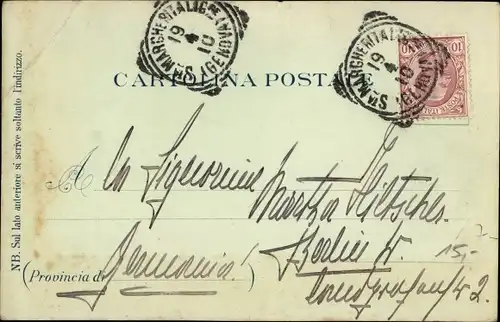 S.TA MARGHERITA LIGURE (GENOVA)
19
4
10
S.TA MARGHERITA LIGURE (GENOVA)
19
4
10
10 10
CARTOLINA POSTALE
NB. Sul lato anteriore si scrive soltanto l'indirizzo.
A la Signorina
Martha
Berlin W.
(Provincia di Germania!
Landgrafenstr 2.
15,-